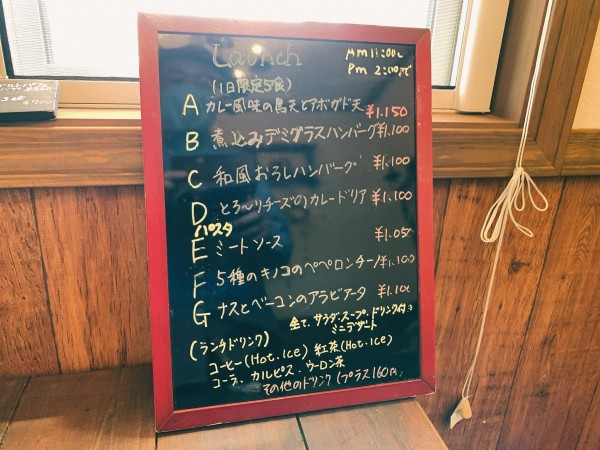 Launch
Am 11:00〜
Pm 2:00まで
(1日限定5食)
A カレー風味の鳥天とアボガド天 ¥1.150
B 煮込みデミグラスハンバーグ ¥1,100
C 和風おろしハンバーグ ¥1,100
D とろ〜りチーズのカレードリア ¥1,100
パスタ
E ミートソース ¥1,05
F 5種のキノコのペペロンチーノ ¥1,100
G ナスとベーコンのアラビアータ ¥1,100
全て、サラダ・スープ、ドリンク付
ミニデザート
(ランチドリンク)
コーヒー(Hot.Ice) 紅茶(Hot.Ice)
コーラ、カルピス・ウーロン茶
その他のドリンク(プラス160円)